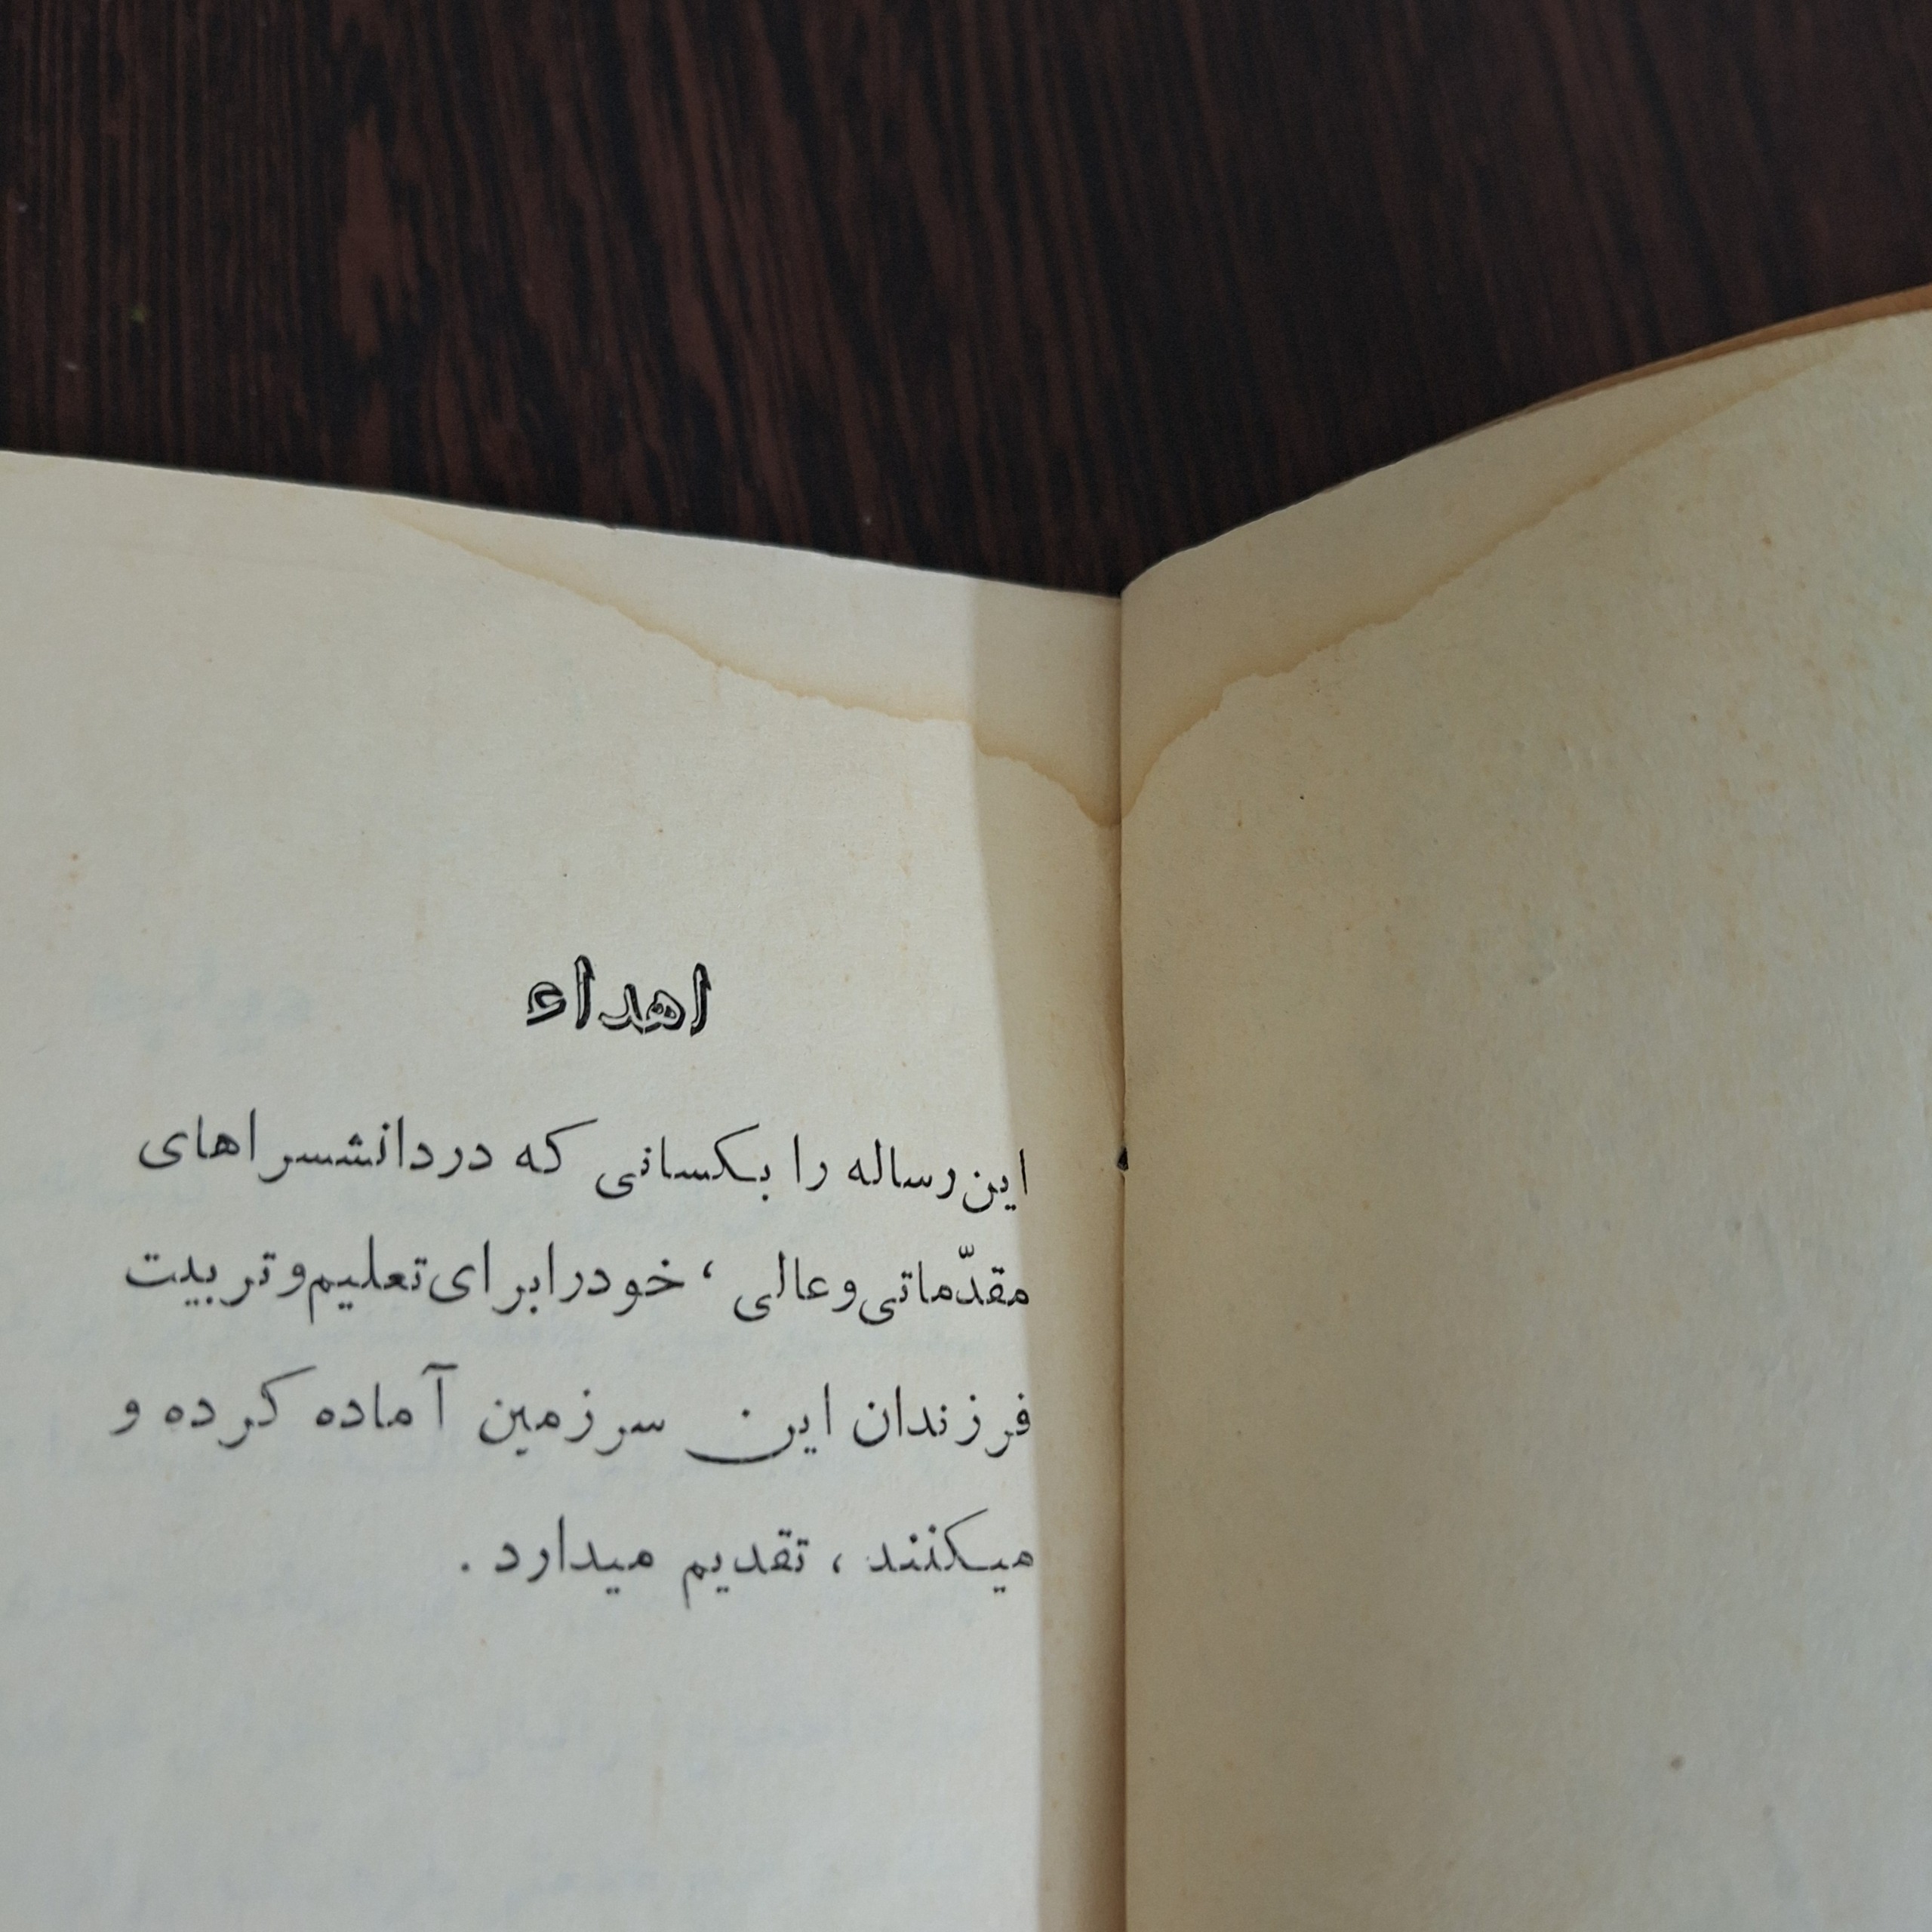 اهداء
این رساله را بکسانی که در دانشسراهای
مقدّماتی و عالی ، خود را برای تعلیم و تربیت
فرزندان این سرزمین آماده کرده و
میکنند ، تقدیم میدارد .